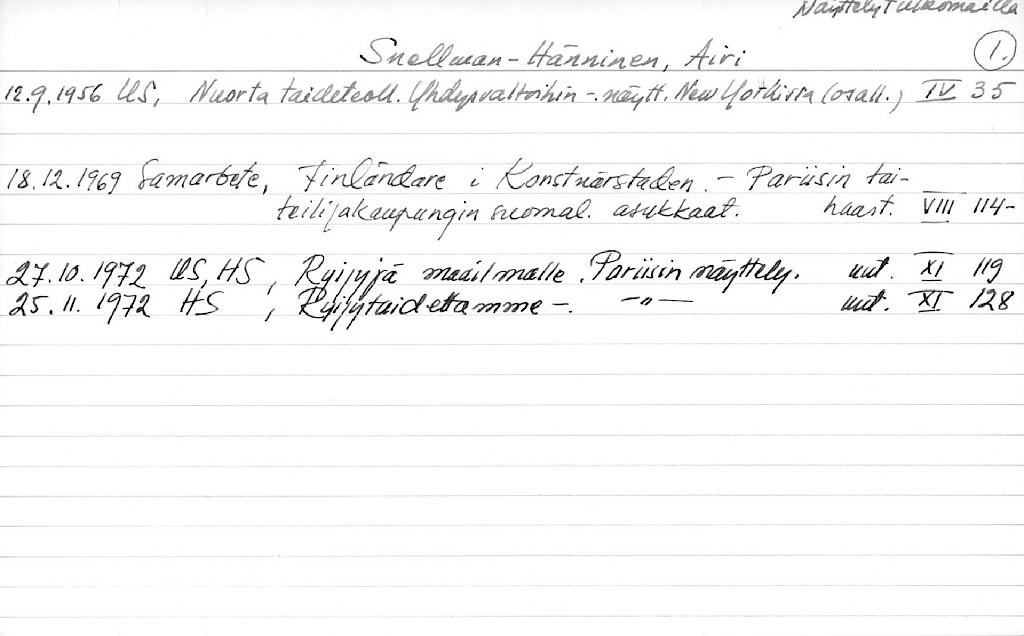 Näyttelyt ulkomailla
Snellman-Hänninen, Airi 1.
12.9.1956 US, Nuorta taideteoll. Yhdysvaltoihin -. näytt. New Yorkissa (osall.) IV 35
18.12.1969 Samarbete, Finländare i Konstnärstaden. - Pariisin tai-
teilijakaupungin suomal. asukkaat. haast. VIII 114-
27.10.1972 US, HS, Ryijyjä maailmalle. Pariisin näyttely. uut. XI 119
25.11.1972 HS, Ryijytaidettamme -. -"- uut. XI 128